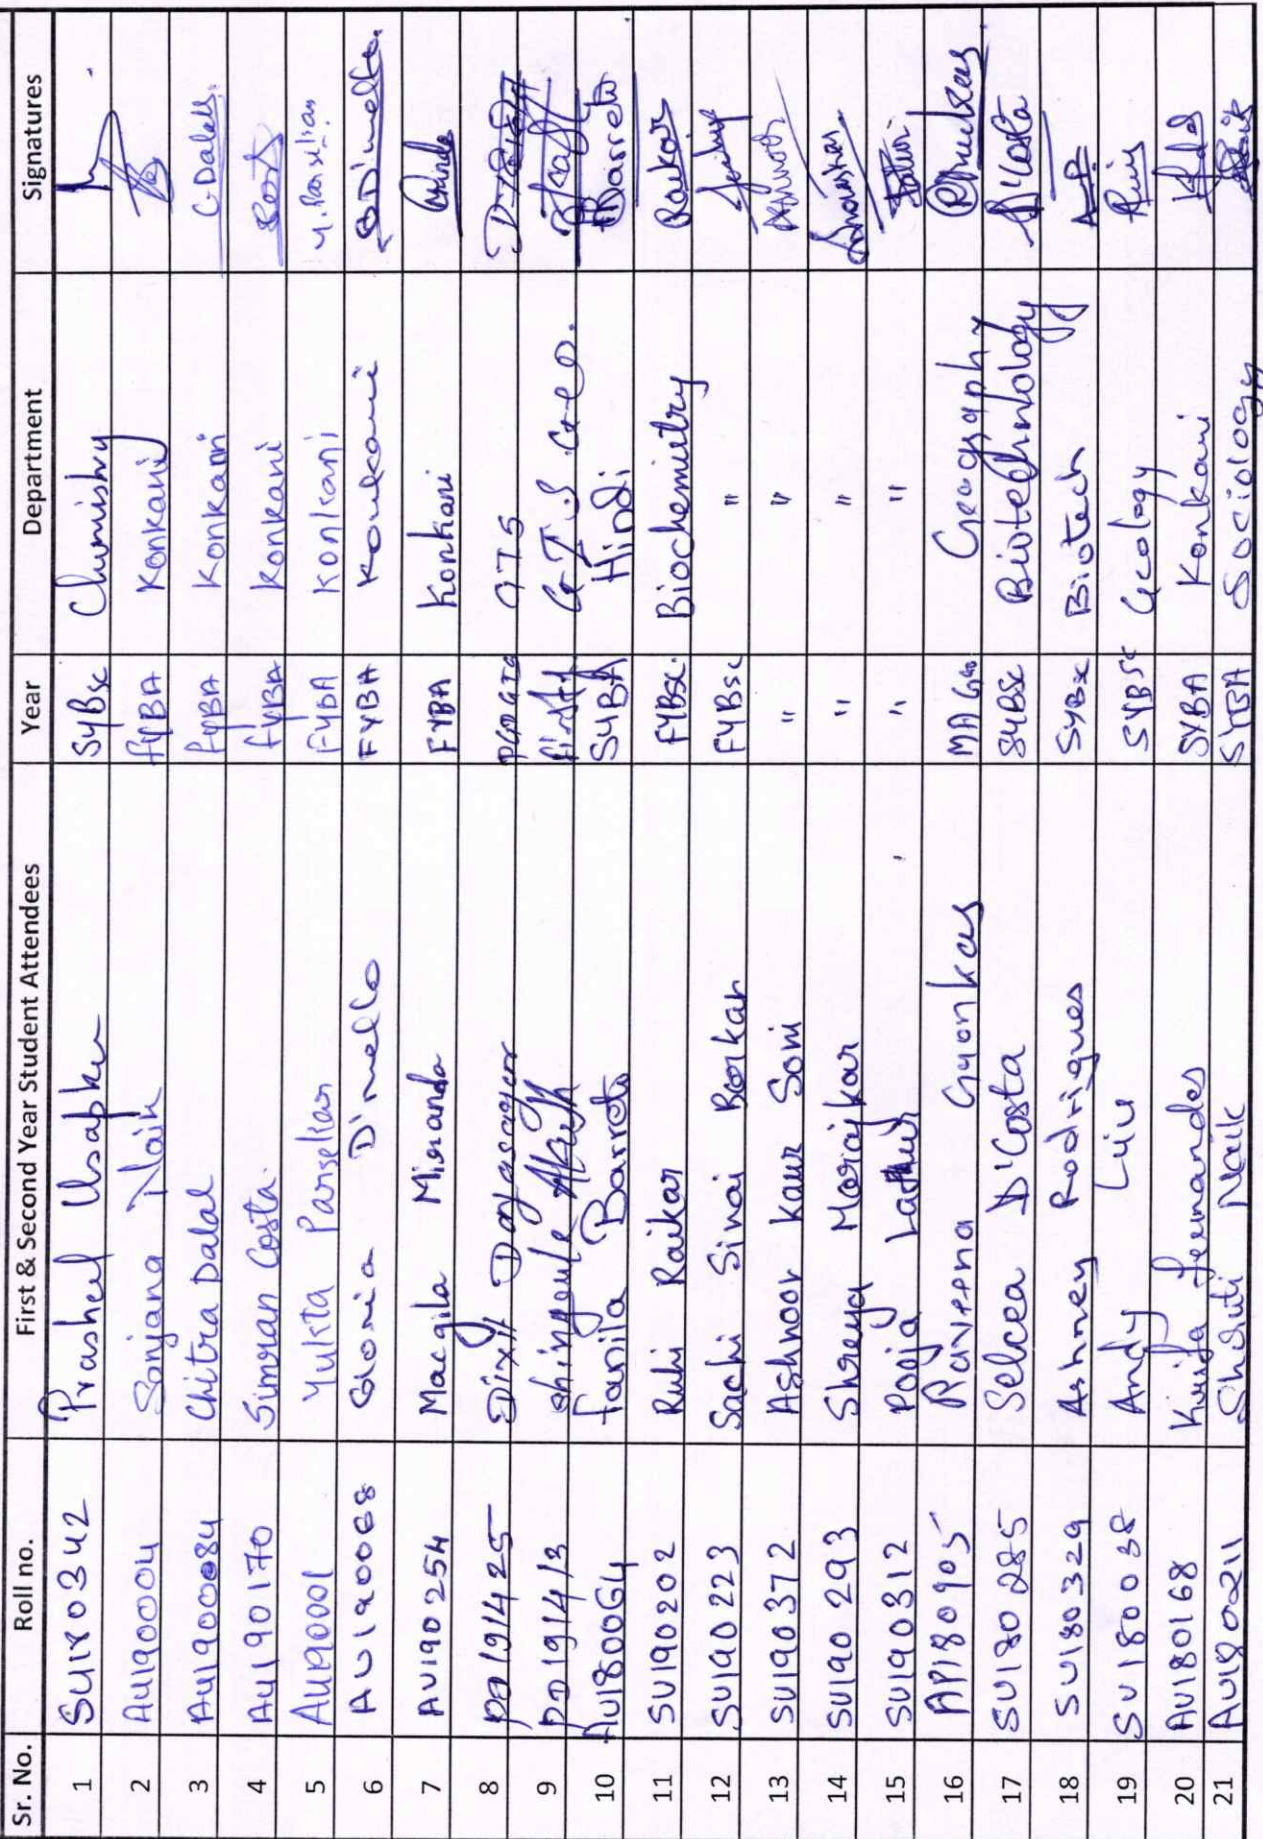 Sr. No. Roll no. First & Second Year Student Attendees Year Department Signatures
1 SU180342 Prashel Usapkar SYBsc Chemistry
2 AU190004 Sanjana Naik fYBA Konkani
3 AU1900084 Chitra Dalal fyBA Konkani CDalal.
4 AU190170 Simran Costa. fyBA Konkani
5 AU19000l Yukta Parselkar FYBA Konkani
6 AU190068 Gloria D'mello FYBA Konkani GD'mello.
7 AU190254 Macgila Miranda FYBA Konkani
8 PD191425 Dixit GTS
9 PD191413 Hindi
10 AU180064 Tanila Barreto SYBA Hindi Barreto
11 SU190202 Ruhi Raikar FYBSc. Biochemistry Raikar
12 SU190223 Sachi Sinai Borkar FYBsc "
13 SU190372 Ashnoor Kaur Soni " "
14 SU190293 Shreya Morajkar " "
15 SU190312 Pooja " "
16 AP180905 Raveena Gaonkar MA Geo Geography
17 SU180285 Selcea D'Costa SYBSc Biotechnology D'Costa
18 SU180329 Ashney Rodrigues SYBSc Biotech A.P
19 SU180038 Andy SYBSc Geology
20 AU180168 Fernandes SYBA Konkani
21 AU180211 Shruti Naik SYBA Sociology